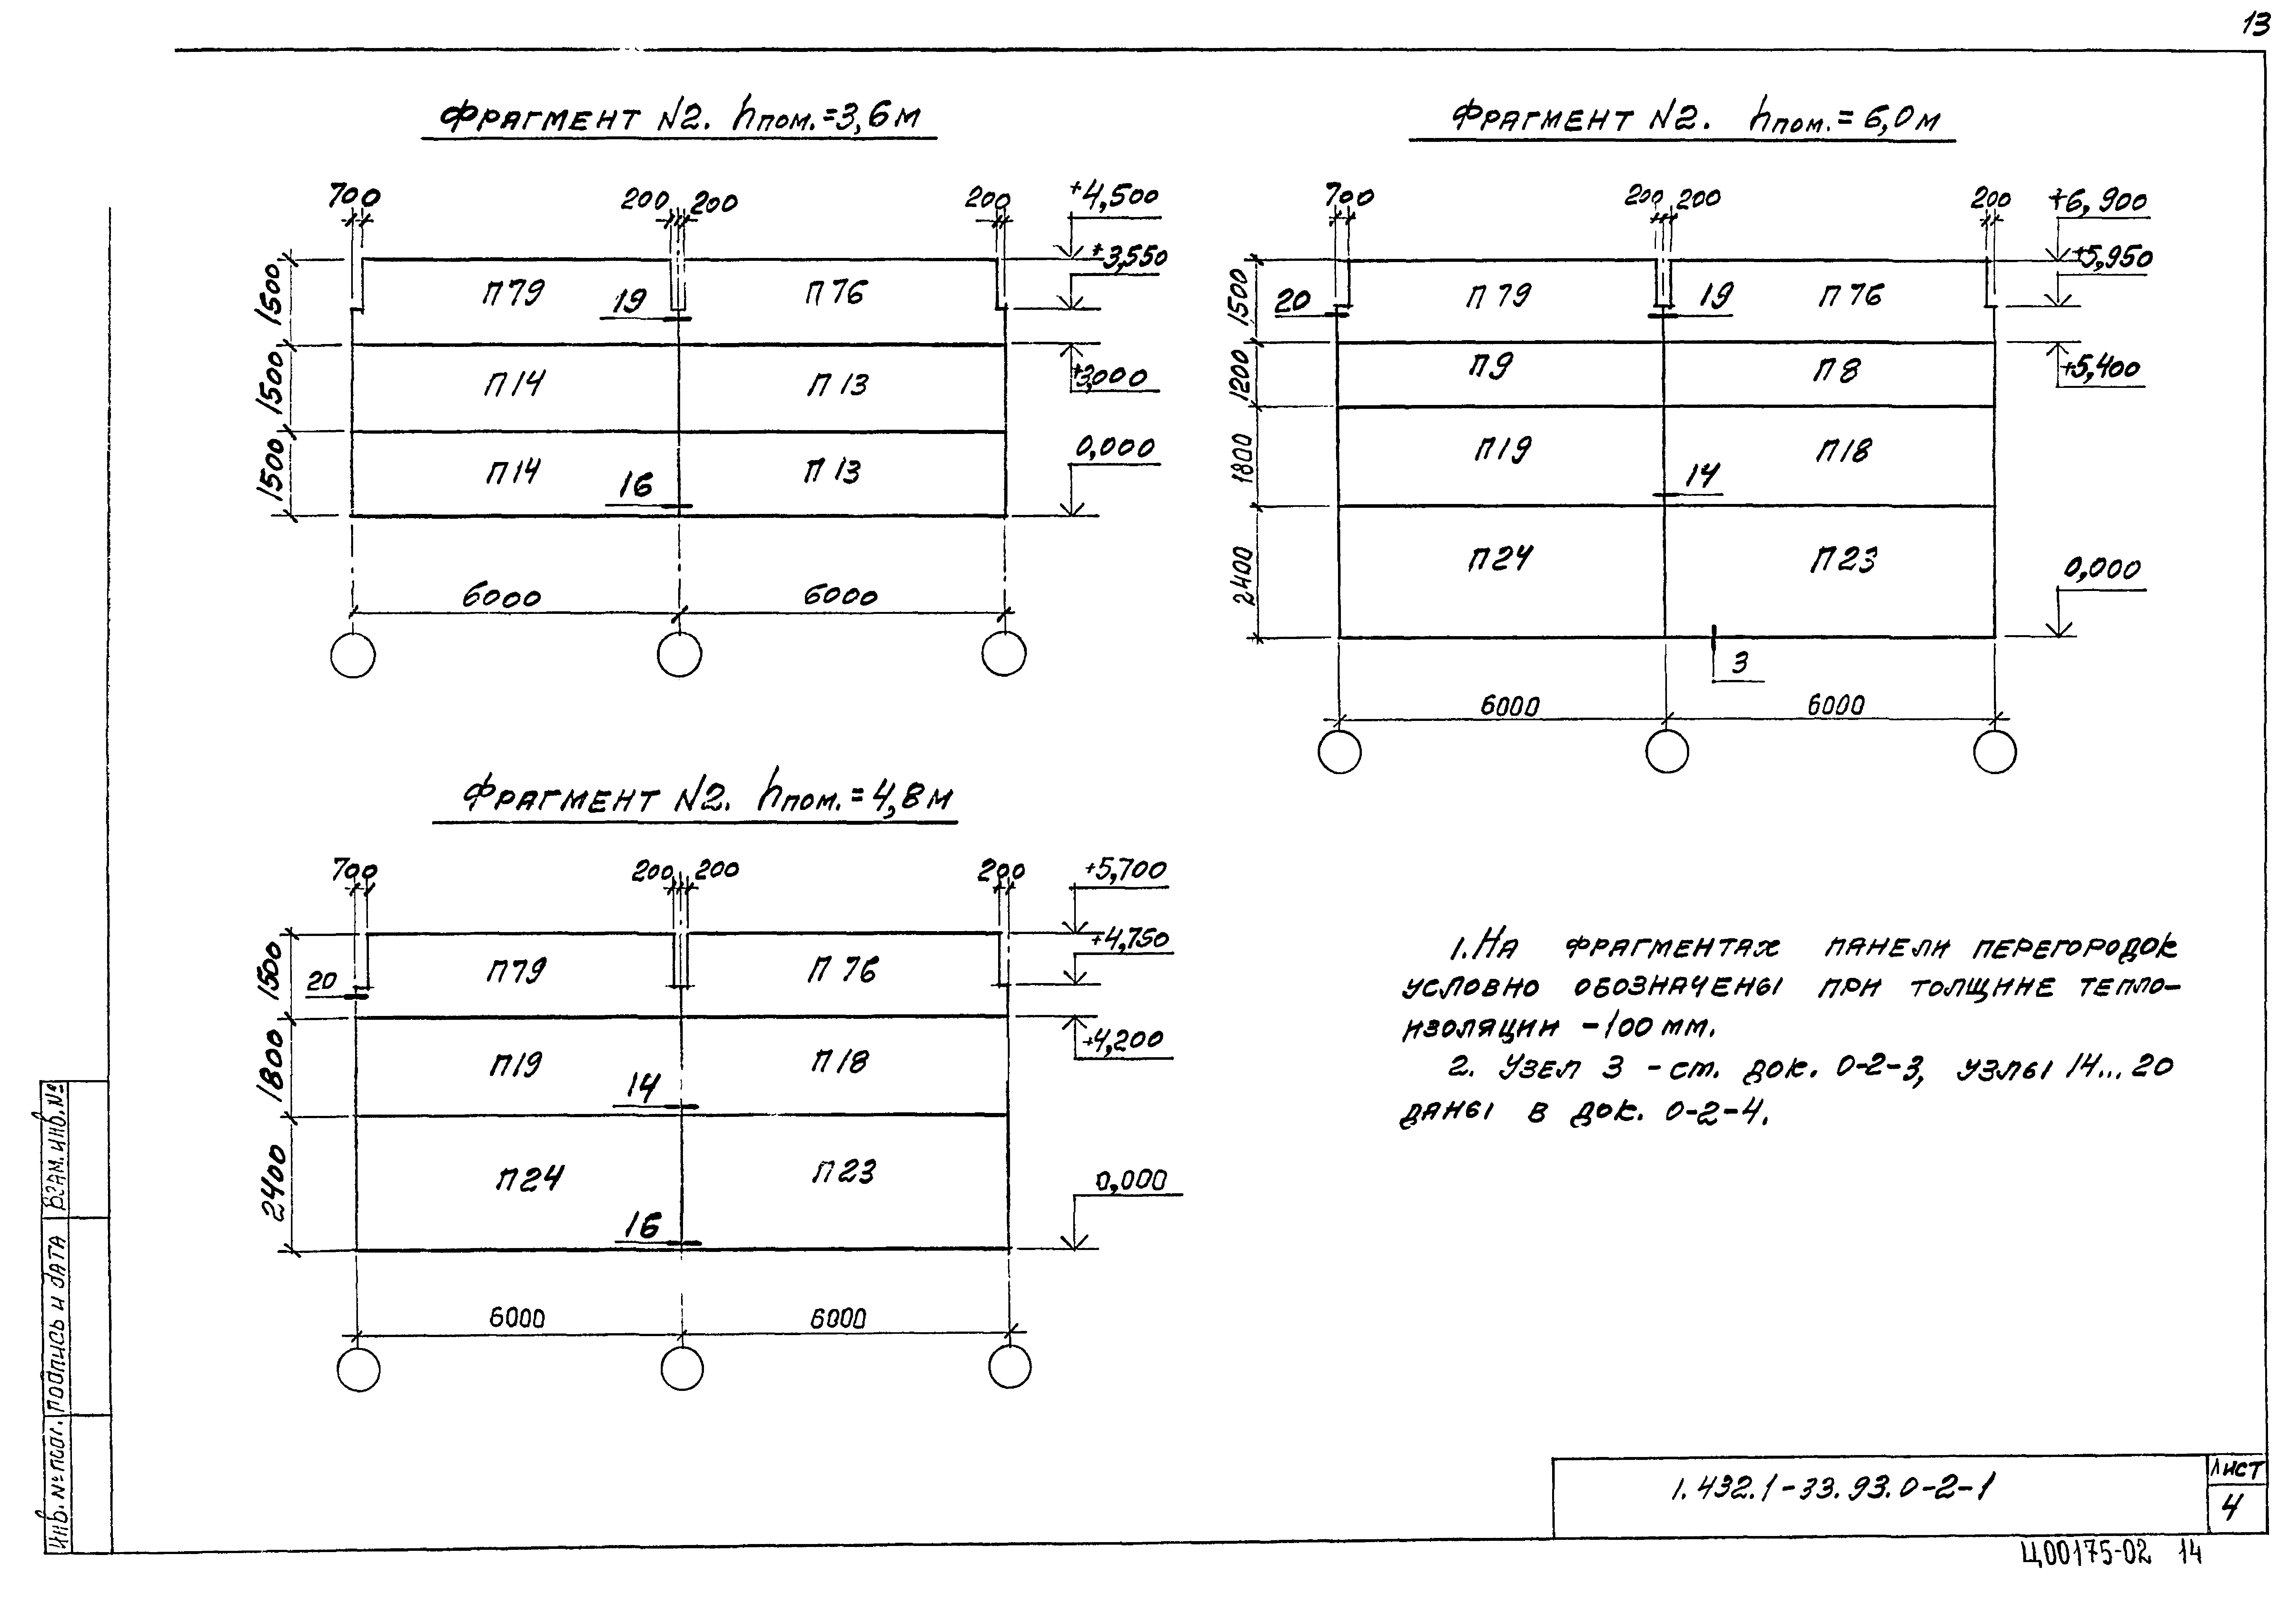 13
ФРАГМЕНТ N2. hпом.=3,6м
700 200 200 200 +4,500
+3,550
1500 П79 19 П76
1500 П14 П13 +3,000
1500 П14 16 П13 0,000
6000 6000
ФРАГМЕНТ N2. hпом.=6,0м
700 200 200 200 +6,900
+5,950
1500 20 П79 19 П76
1200 П9 П8 +5,400
1800 П19 14 П18
2400 П24 П23 0,000
3
6000 6000
ФРАГМЕНТ N2. hпом.=4,8м
700 200 200 200 +5,700
+4,750
1500 20 П79 П76
1800 П19 14 П18 +4,200
2400 П24 16 П23 0,000
6000 6000
1. НА ФРАГМЕНТАХ ПАНЕЛИ ПЕРЕГОРОДОК
УСЛОВНО ОБОЗНАЧЕНЫ ПРИ ТОЛЩИНЕ ТЕПЛО-
ИЗОЛЯЦИИ -100 мм.
2. УЗЕЛ 3 - см. док. 0-2-3, УЗЛЫ 14... 20
ДАНЫ В ДОК. 0-2-4.
Инв. № посл. Подпись и дата Взам. инв. №
1.432.1-33.93.0-2-1
Лист
4
Ц00175-02 14